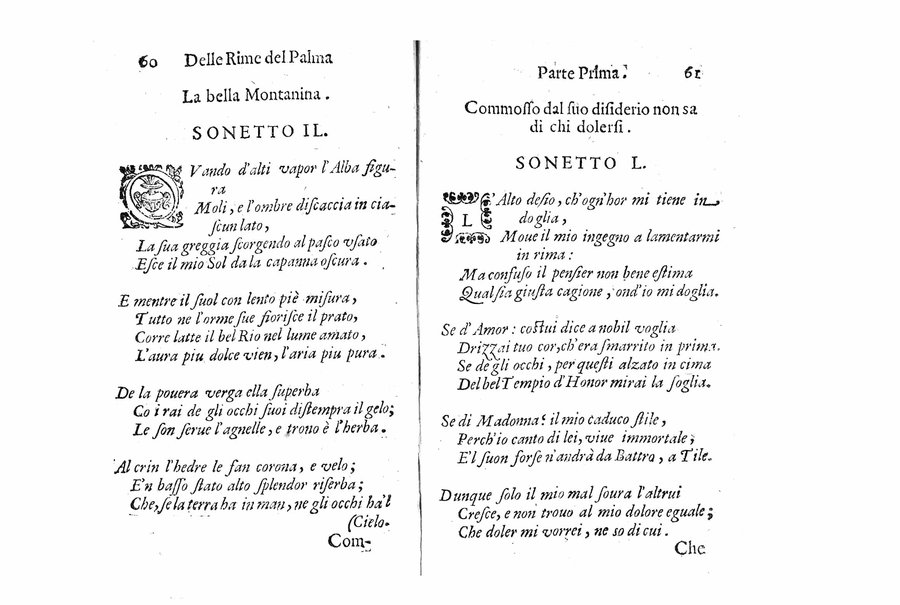 60 Delle Rime del Palma
La bella Montanina.
SONETTO IL.
QVando d'alti vapor l'Alba figu-
ra
Moli, e l'ombre diſcaccia in cia-
ſcun lato,
La ſua greggia ſcorgendo al paſco vſato
Eſce il mio Sol da la capanna oſcura.
E mentre il ſuol con lento piè miſura,
Tutto ne l'orme ſue fioriſce il prato,
Corre latte il bel Rio nel lume amato,
L'aura piu dolce vien, l'aria piu pura.
De la pouera verga ella ſuperba
Co i rai de gli occhi ſuoi diſtempra il gelo;
Le ſon ſerue l'agnelle, e trono è l'herba.
Al crin l'hedre le fan corona, e velo;
E'n baſſo ſtato alto ſplendor riſerba;
Che, ſe la terra ha in man, ne gli occhi ha'l
(Cielo.
Com-
Parte Prima. 61
Commoſſo dal ſuo diſiderio non sa
di chi dolerſi.
SONETTO L.
L'Alto deſio, ch'ogn'hor mi tiene in
doglia,
Moue il mio ingegno a lamentarmi
in rima:
Ma confuſo il penſier non bene eſtima
Qual ſia giuſta cagione, ond'io mi doglia.
Se d'Amor: coſtui dice a nobil voglia
Drizzai tuo cor, ch'era ſmarrito in prima.
Se de gli occhi, per queſti alzato in cima
Del bel Tempio d'Honor mirai la ſoglia.
Se di Madonna: il mio caduco ſtile,
Perch'io canto di lei, viue immortale;
E'l ſuon forſe n'andrà da Battro, a Tile.
Dunque ſolo il mio mal ſoura l'altrui
Creſce, e non trouo al mio dolore eguale;
Che doler mi vorrei, ne so di cui.
Che